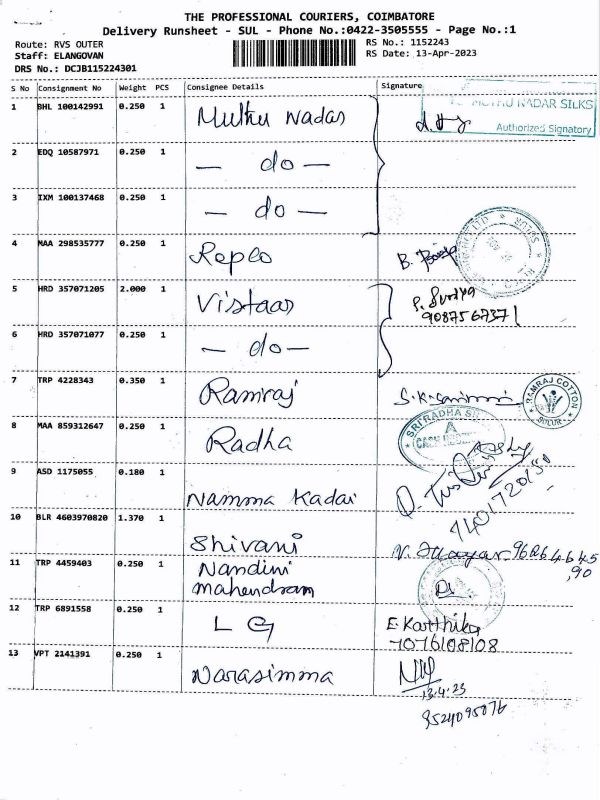 THE PROFESSIONAL COURIERS, COIMBATORE
Delivery Runsheet - SUL - Phone No.:0422-3505555 - Page No.:1
Route: RVS OUTER
Staff: ELANGOVAN
DRS No.: DCJB115224301
RS No.: 1152243
RS Date: 13-Apr-2023
S No Consignment No Weight PCS Consignee Details Signature
1 BHL 100142991 0.250 1 Muthu Nadar
MUTHU NADAR SILKS
Authorized Signatory
2 EDQ 10587971 0.250 1 — do —
3 IXM 100137468 0.250 1 — do —
4 MAA 298535777 0.250 1 Repco B.
5 HRD 357071205 2.000 1 Vistaar P. Surya
9087567371
6 HRD 357071077 0.250 1 — do —
7 TRP 4228343 0.350 1 Ramraj S.K.
RAMRAJ COTTON
SULUR
8 MAA 859312647 0.250 1 Radha
SRI RADHA
A
9 ASD 1175055 0.180 1 Namma Kadai
7401720150
10 BLR 4603970820 1.370 1 Shivani
11 TRP 4459403 0.250 1 Nandini
Mahendram
12 TRP 6891558 0.250 1 LG E. Karthika
7076108108
13 VPT 2141391 0.250 1 Narasimma
13.4.23
9524095076